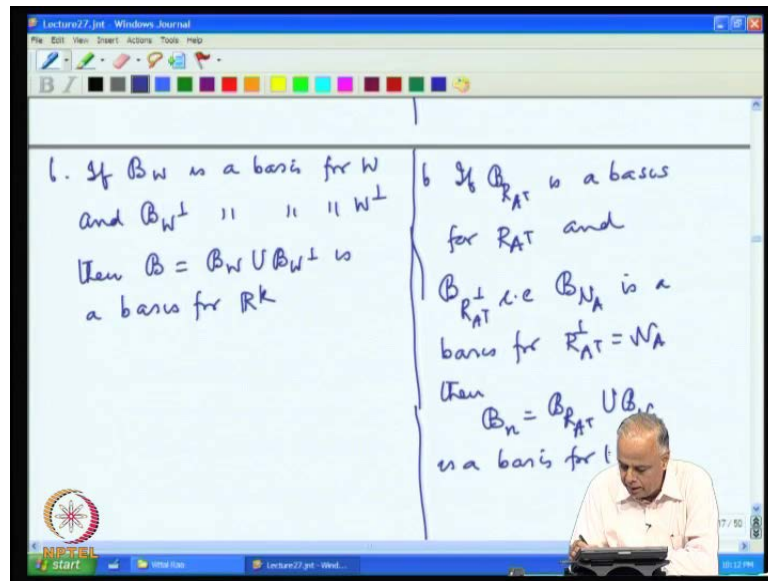 Lecture27.jnt - Windows Journal
File Edit View Insert Actions Tools Help
B I
6. If B_W is a basis for W
and B_W⊥ " " " W⊥
then B = B_W ∪ B_W⊥ is
a basis for ℝ^k
6 If B_{R_{A^T}} is a basis
for R_{A^T} and
B_{R_{A^T}^⊥} i.e B_{N_A} is a
basis for R_{A^T}^⊥ = N_A
then
B_n = B_{R_{A^T}} ∪
is a basis for
17 / 50
NPTEL
start
Vittal Rao
Lecture27.jnt - Wind...
10:12 PM